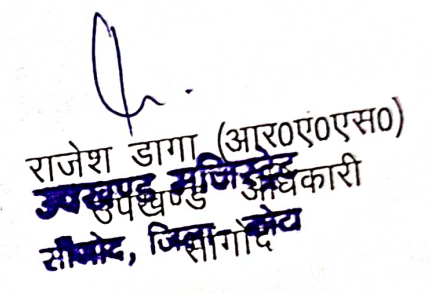 राजेश डागा (आर०ए०एस०)
उपखण्ड मजिस्ट्रेट
उपखण्ड अधिकारी
सांगोद, जिला कोटा
सांगोद